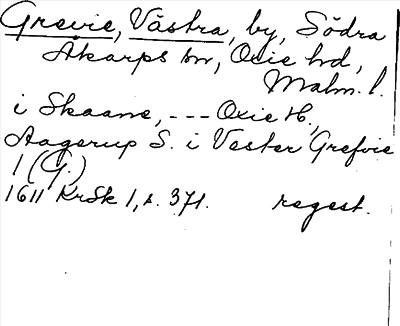 Grevie, Västra, by, Södra
Åkarps sn, Oxie hd,
Malm. l.
i Skaane, --- Oxie H,
Aagerup S. i Vester Grefvie
1 (G.)
1611 KrSk 1, s. 371. regest.